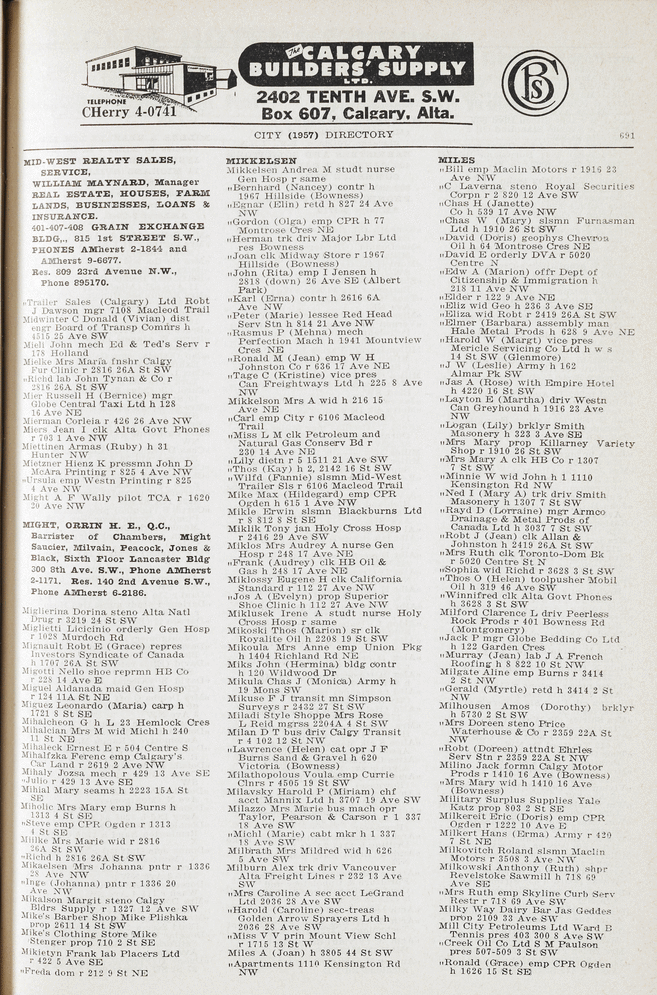 The CALGARY
BUILDERS' SUPPLY
LTD.
2402 TENTH AVE. S.W.
Box 607, Calgary, Alta.
TELEPHONE
CHerry 4-0741
CBS
CITY (1957) DIRECTORY
691
MID-WEST REALTY SALES,
SERVICE,
WILLIAM MAYNARD, Manager
REAL ESTATE, HOUSES, FARM
LANDS, BUSINESSES, LOANS &
INSURANCE.
401-407-408 GRAIN EXCHANGE
BLDG.,. 815 1st STREET S.W.,
PHONES AMherst 2-1844 and
AMherst 9-6677.
Res. 809 23rd Avenue N.W.,
Phone 895170.
„Trailer Sales (Calgary) Ltd Robt
J Dawson mgr 7108 Macleod Trail
Midwinter C Donald (Vivian) dist
engr Board of Transp Comnrs h
4515 25 Ave SW
Mieli John mech Ed & Ted's Serv r
178 Holland
Mielke Mrs Maria fnshr Calgy
Fur Clinic r 2816 26A St SW
„Richd lab John Tynan & Co r
2816 26A St SW
Mier Russell H (Bernice) mgr
Globe Central Taxi Ltd h 128
16 Ave NE
Mierman Corleia r 426 26 Ave NW
Miers Jean I clk Alta Govt Phones
r 703 1 Ave NW
Miettinen Armas (Ruby) h 31
Hunter NW
Mietzner Hienz K pressmn John D
McAra Printing r 825 4 Ave NW
„Ursula emp Westn Printing r 825
4 Ave NW
Might A F Wally pilot TCA r 1620
20 Ave NW
MIGHT, ORRIN H. E., Q.C.,
Barrister of Chambers, Might
Saucier, Milvain, Peacock, Jones &
Black, Sixth Floor Lancaster Bldg
300 8th Ave. S.W., Phone AMherst
2-1171. Res. 140 2nd Avenue S.W.,
Phone AMherst 6-2186.
Miglierina Dorina steno Alta Natl
Drug r 3219 24 St SW
Miglietti Licicinio orderly Gen Hosp
r 1028 Murdoch Rd
Mignault Robt E (Grace) repres
Investors Syndicate of Canada
h 1707 26A St SW
Migotti Nello shoe reprmn HB Co
r 228 14 Ave E
Miguel Aldanada maid Gen Hosp
r 124 11A St NE
Miguez Leonardo (Maria) carp h
1721 8 St SE
Mihalcheon G h L 23 Hemlock Cres
Mihalcian Mrs M wid Michl h 240
11 St NE
Mihaleck Ernest E r 504 Centre S
Mihalfzka Ferenc emp Calgary's
Car Land r 2619 2 Ave NW
Mihaly Jozsa mech r 429 13 Ave SE
„Julio r 429 13 Ave SE
Mihial Mary seams h 2223 15A St
SE
Miholic Mrs Mary emp Burns h
1313 4 St SE
„Steve emp CPR Ogden r 1313
4 St SE
Miilke Mrs Marie wid r 2816
26A St SW
„Richd h 2816 26A St SW
Mikaelsen Mrs Johanna pntr r 1336
28 Ave NW
„Inge (Johanna) pntr r 1336 20
Ave NW
Mikalson Margit steno Calgy
Bldrs Supply r 1327 12 Ave SW
Mike's Barber Shop Mike Plishka
prop 2611 14 St SW
Mike's Clothing Store Mike
Stenger prop 710 2 St SE
Mikietyn Frank lab Placers Ltd
r 422 5 Ave SE
„Freda dom r 212 9 St NE
MIKKELSEN
Mikkelsen Andrea M studt nurse
Gen Hosp r same
„Bernhard (Nancy) contr h
1967 Hillside (Bowness)
„Egnar (Elin) retd h 827 24 Ave
NW
„Gordon (Olga) emp CPR h 77
Montrose Cres NE
„Herman trk driver Major Lbr Ltd
res Bowness
„Joan clk Midway Store r 1967
Hillside (Bowness)
„John (Rita) emp I Jensen h
2818 (down) 26 Ave SE (Albert
Park)
„Karl (Erna) contr h 2616 6A
Ave NW
„Peter (Marie) lessee Red Head
Serv Stn h 814 21 Ave NW
„Rasmus P (Mehna) mech
Perfection Mach h 1941 Mountview
Cres NE
„Ronald M (Jean) emp W H
Johnston Co r 636 17 Ave NE
„Tage C (Kristine) vice pres
Can Freightways Ltd h 225 8 Ave
NW
Mikkelson Mrs A wid h 216 15
Ave NE
„Carl emp City r 6106 Macleod
Trail
„Miss L M clk Petroleum and
Natural Gas Conserv Bd r
230 14 Ave NE
„Lily dietn r 5 1511 21 Ave SW
„Thos (Kay) h 2, 2142 16 St SW
„Wilfd (Fannie) slsmn Mid-West
Trailer Sls r 6106 Macleod Trail
Mike Max (Hildegard) emp CPR
Ogden h 615 1 Ave NW
Mikle Erwin slsmn Blackburns Ltd
r 8 812 8 St SE
Miklik Tony jan Holy Cross Hosp
r 2416 29 Ave SW
Miklos Mrs Audrey A nurse Gen
Hosp r 248 17 Ave NE
„Frank (Audrey) clk HB Oil &
Gas h 248 17 Ave NE
Miklossy Eugene H clk California
Standard r 112 27 Ave NW
„Jos A (Evelyn) prop Superior
Shoe Clinic h 112 27 Ave NW
Miklusek Irene A studt nurse Holy
Cross Hosp r same
Mikoski Thos (Marion) sr clk
Royalite Oil h 2208 19 St SW
Mikoula Mrs Anne emp Union Pkg
h 1404 Richland Rd NE
Miks John (Hermina) bldg contr
h 120 Wildwood Dr
Mikula Chas J (Monica) Army h
19 Mons SW
Mikuse F J transit mn Simpson
Surveys r 2432 27 St SW
Miladi Style Shoppe Mrs Rose
L Reid mgrss 2204A 4 St SW
Milan D T bus driv Calgy Transit
r 4 102 12 St NW
„Lawrence (Helen) cat opr J F
Burns Sand & Gravel h 620
Victoria (Bowness)
Milathopolous Voula emp Currie
Clnrs r 4505 19 St SW
Milavsky Harold P (Miriam) chf
acct Mannix Ltd h 3707 19 Ave SW
Milazzo Mrs Marie bus mach opr
Taylor, Pearson & Carson r 1 337
18 Ave SW
„Michl (Marie) cabt mkr h 1 337
18 Ave SW
Milbrath Mrs Mildred wid h 626
5 Ave SW
Milburn Alex trk driv Vancouver
Alta Freight Lines r 232 13 Ave
SW
„Mrs Caroline A sec acct LeGrand
Ltd 2036 28 Ave SW
„Harold (Caroline) sec-treas
Golden Arrow Sprayers Ltd h
2036 28 Ave SW
„Miss V V prin Mount View Schl
r 1715 13 St W
Miles A (Joan) h 3805 44 St SW
„Apartments 1110 Kensington Rd
NW
MILES
„Bill emp Maclin Motors r 1916 23
Ave NW
„C Laverna steno Royal Securities
Corp r 2 820 12 Ave SW
„Chas H (Janette)
Co h 539 17 Ave NW
„Chas W (Mary) slsmn Furnasman
Ltd h 1910 26 St SW
„David (Doris) geophys Chevron
Oil h 64 Montrose Cres NE
„David E orderly DVA r 5020
Centre N
„Edw A (Marion) offr Dept of
Citizenship & Immigration h
218 11 Ave NW
„Elder r 122 9 Ave NE
„Eliz wid Geo h 236 3 Ave SE
„Eliza wid Robt r 2419 26A St SW
„Elmer (Barbara) assembly man
Hale Metal Prods h 628 9 Ave NE
„Harold W (Margt) vice pres
Mericle Servicing Co Ltd h w s
14 St SW (Glenmore)
„J W (Leslie) Army h 162
Almar Pk SW
„Jas A (Rose) with Empire Hotel
h 4220 16 St SW
„Layton E (Martha) driv Westn
Can Greyhound h 1916 23 Ave
NW
„Logan (Lily) brklyr Smith
Masonery h 323 3 Ave SE
„Mrs Mary prop Killarney Variety
Shop r 1910 26 St SW
„Mrs Mary A clk HB Co r 1307
7 St SW
„Minnie W wid John h 1 1110
Kensington Rd NW
„Ned I (Mary A) trk driv Smith
Masonery h 1307 7 St SW
„Rayd D (Lorraine) mgr Armco
Drainage & Metal Prods of
Canada Ltd h 3037 7 St SW
„Robt J (Jean) clk Allan &
Johnston h 2419 26A St SW
„Mrs Ruth clk Toronto-Dom Bk
r 5020 Centre St N
„Sophia wid Richd r 3628 3 St SW
„Thos O (Helen) toolpusher Mobil
Oil h 319 46 Ave SW
„Winnifred clk Alta Govt Phones
h 3628 3 St SW
Milford Clarence L driv Peerless
Rock Prods r 401 Bowness Rd
(Montgomery)
„Jack P mgr Globe Bedding Co Ltd
h 122 Garden Cres
„Murray (Jean) lab J A French
Roofing h 8 822 10 St NW
Milgate Aline emp Burns r 3414
2 St NW
„Gerald (Myrtle) retd h 3414 2 St
NW
Milhousen Amos (Dorothy) brklyr
h 5730 2 St SW
„Mrs Doreen steno Price
Waterhouse & Co r 2359 22A St
NW
„Robt (Doreen) attndt Ehrles
Serv Stn r 2359 22A St NW
Milino Jack formn Calgy Motor
Prods r 1410 16 Ave (Bowness)
„Mrs Mary wid h 1410 16 Ave
(Bowness)
Military Surplus Supplies Yale
Katz prop 803 2 St SE
Milkereit Eric (Doris) emp CPR
Ogden r 1222 10 Ave E
Milkert Hans (Erma) Army r 420
7 St NE
Milkovitch Roland slsmn Maclin
Motors r 3508 3 Ave NW
Milkowski Anthony (Ruth) shpr
Revelstoke Sawmill h 718 69
Ave SE
„Mrs Ruth emp Skyline Curb Serv
Restr r 718 69 Ave SW
Milky Way Dairy Bar Jas Geddes
prop 2109 33 Ave SW
Mill City Petroleums Ltd Ward B
Tennis pres 403 300 8 Ave SW
„Creek Oil Co Ltd S M Paulson
pres 507-509 3 St SW
„Ronald (Grace) emp CPR Ogden
h 1626 15 St SE